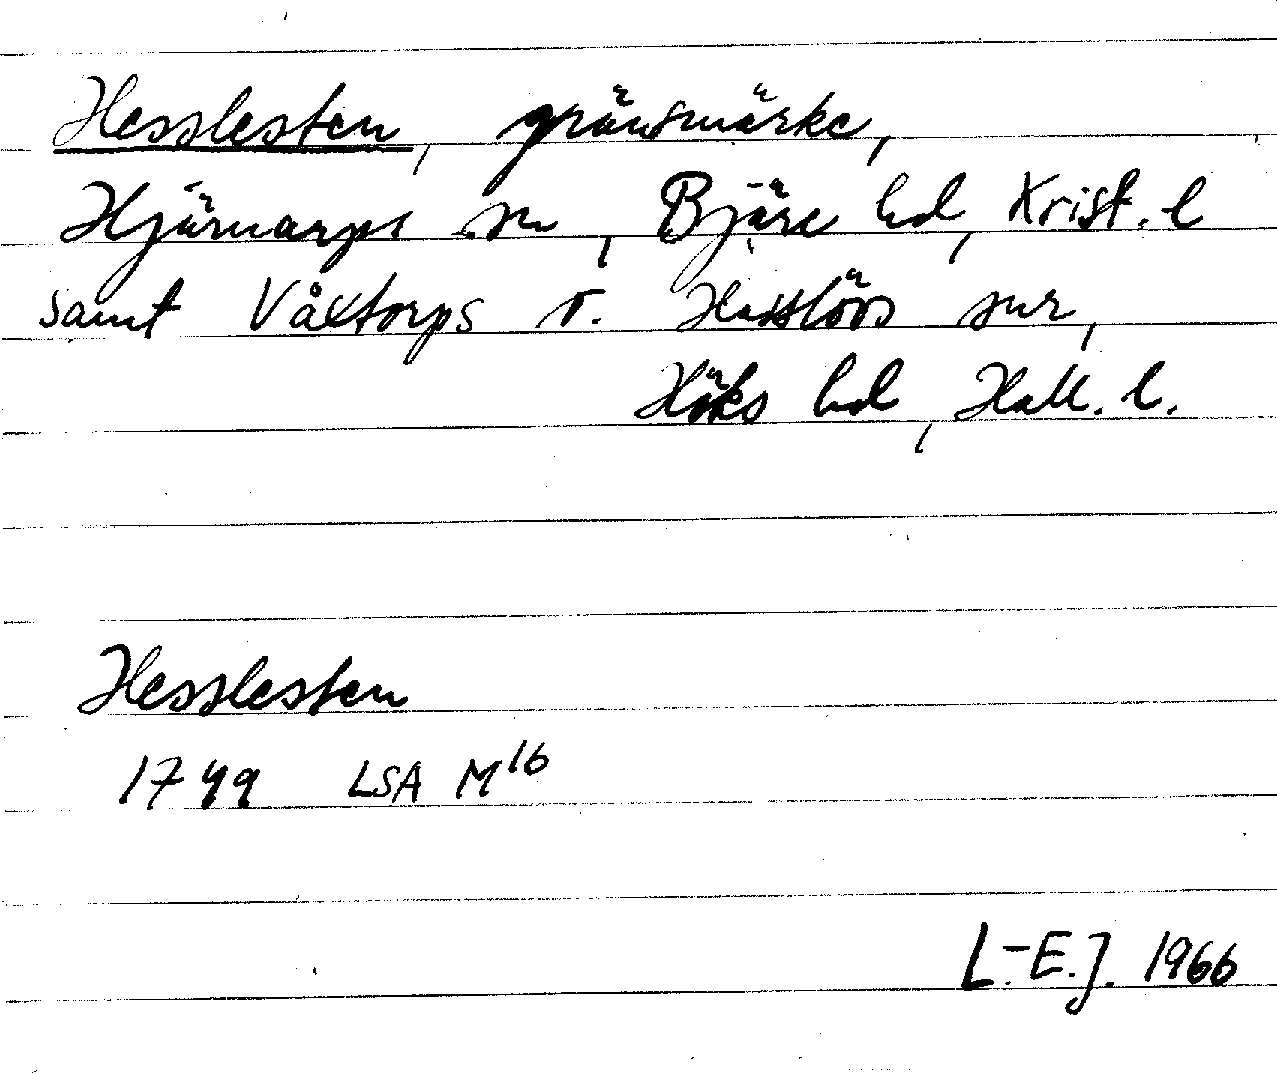 Hesslesten, gränsmärke,
Hjärnarps sn, Bjäre hd, Krist. l
samt Våxtorps o. Hasslövs snr,
Höks hd, Hall. l.
Hesslesten
1749 LSA M16
L.-E.J. 1966